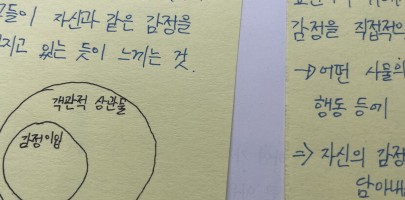 들이 자신과 같은 감정을
지고 있는 듯이 느끼는 것.
객관적 상관물
감정이입
감정을 직접적으
→ 어떤 사물의
행동 등에
⇒ 자신의 감정
담아내